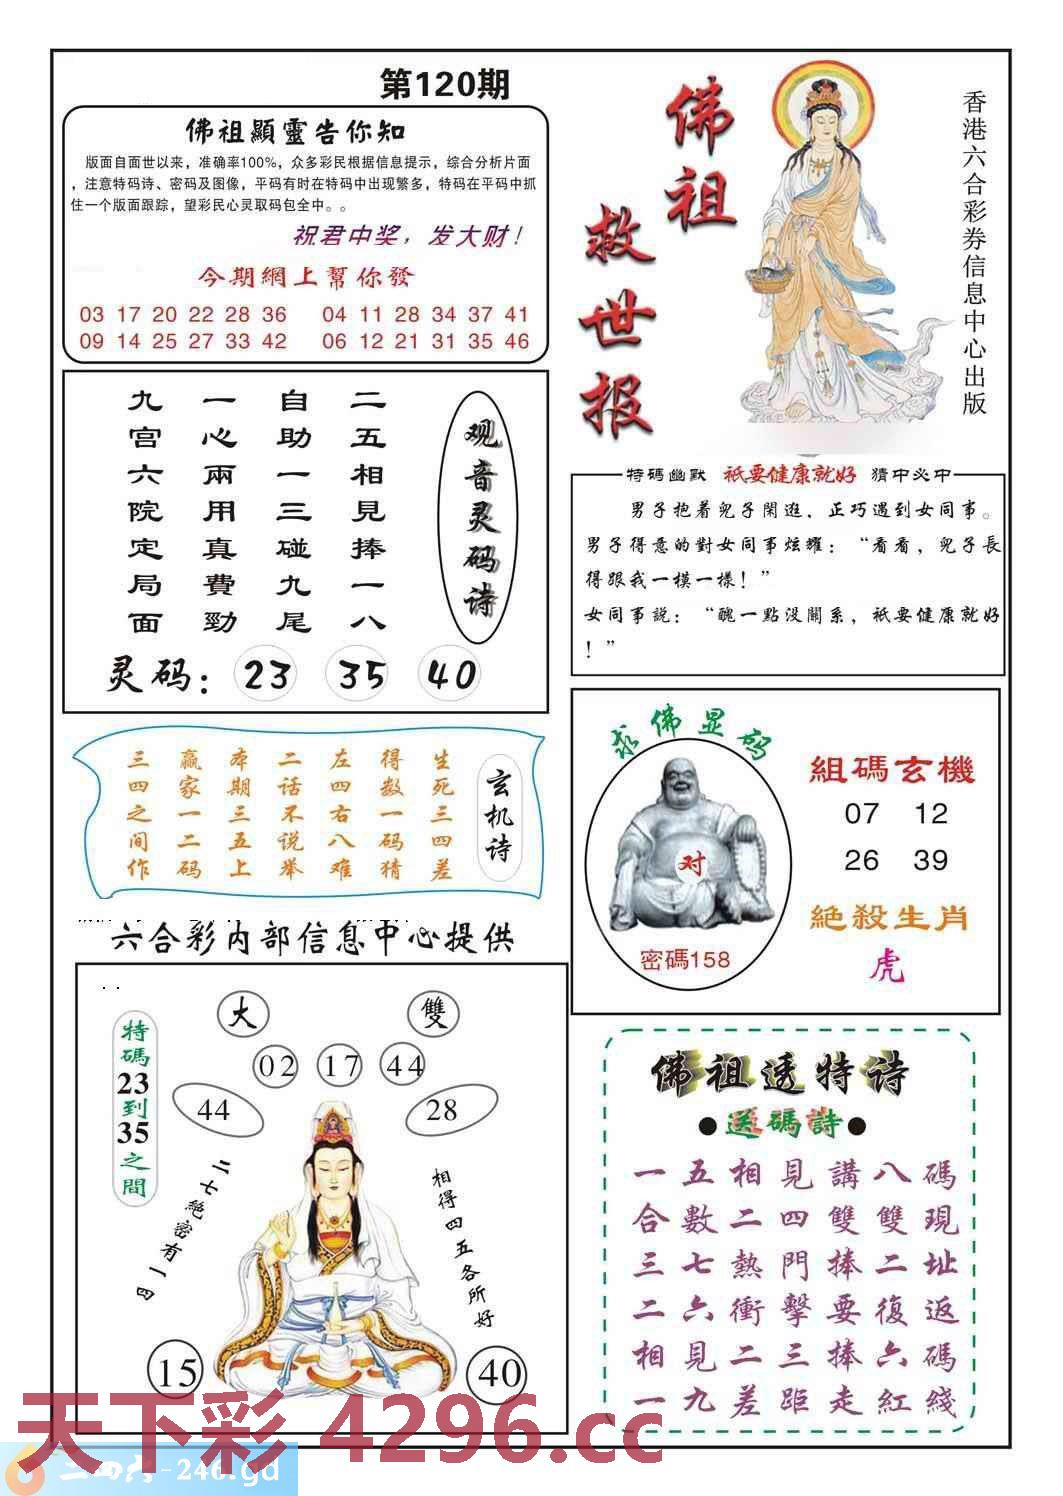 第120期
佛祖顯靈告你知
版面自面世以来，准确率100%，众多彩民根据信息提示，综合分析片面
，注意特码诗、密码及图像，平码有时在特码中出现繁多，特码在平码中抓
住一个版面跟踪，望彩民心灵取码包全中。。
祝君中奖，发大财！
今期網上幫你發
03 17 20 22 28 36 04 11 28 34 37 41
09 14 25 27 33 42 06 12 21 31 35 46
佛祖
救世报
香港六合彩券信息中心出版
观音灵码诗
二五相見捧一八
自助一三碰九尾
一心兩用真費勁
九宫六院定局面
灵码：23 35 40
特碼幽默 祇要健康就好 猜中必中
男子抱着兒子閑逛，正巧遇到女同事。
男子得意的對女同事炫耀：“看看，兒子長
得跟我一模一樣！”
女同事説：“醜一點没關系，祇要健康就好
！”
玄机诗
生死三四差
得数一码猜
左四右八难
二话不说举
本期三五上
赢家一二码
三四之间作
求佛显码
对
密碼158
組碼玄機
07 12
26 39
絶殺生肖
虎
六合彩内部信息中心提供
特碼23到35之間
大
雙
02 17 44
44
28
二七絶密有一四
相得四五各所好
15
40
佛祖透特诗
●送碼詩●
一五相見講八碼
合數二四雙雙現
三七熱門捧二址
二六衝擊要復返
相見二三捧六碼
一九差距走紅綫
天下彩 4296.cc
二四六-246.gd